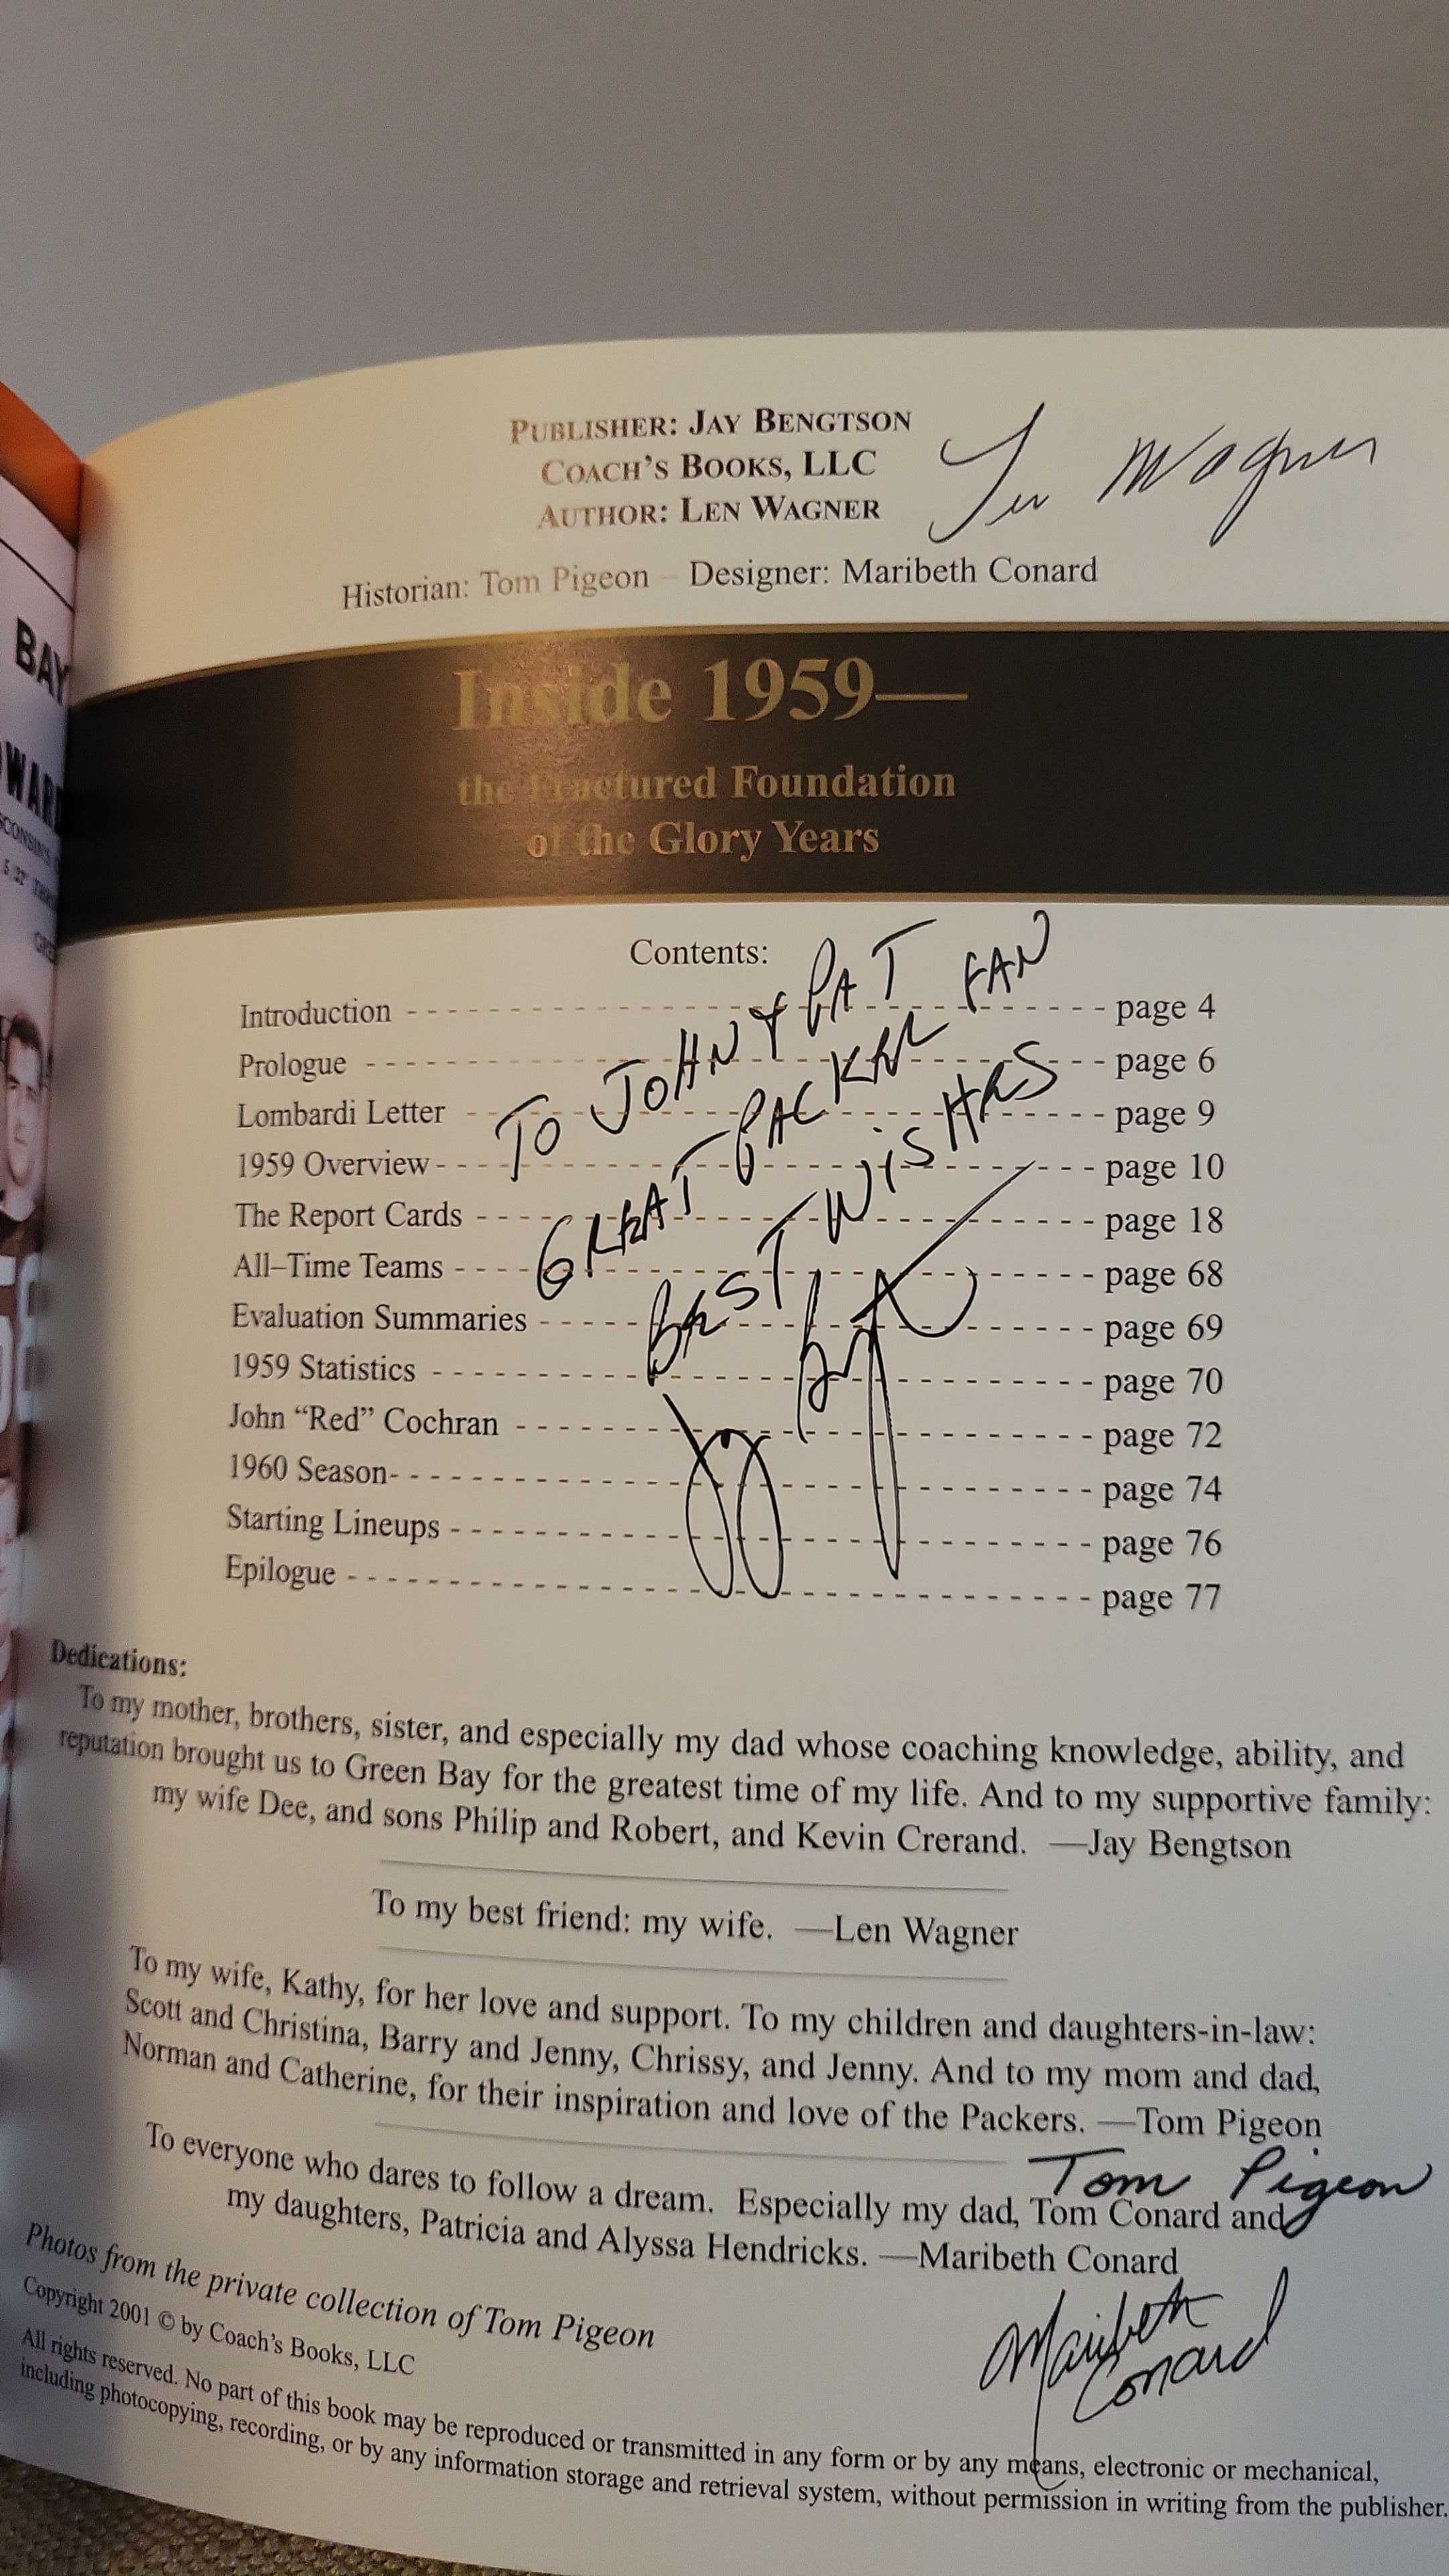 BAY
PUBLISHER: JAY BENGTSON
COACH'S BOOKS, LLC
AUTHOR: LEN WAGNER
Len Wagner
Historian: Tom Pigeon – Designer: Maribeth Conard
Inside 1959—
the Fractured Foundation
of the Glory Years
Contents:
Introduction - - - page 4
Prologue - - - page 6
Lombardi Letter - - - page 9
1959 Overview - - - page 10
The Report Cards - - - page 18
All–Time Teams - - - page 68
Evaluation Summaries - - - page 69
1959 Statistics - - - page 70
John “Red” Cochran - - - page 72
1960 Season - - - page 74
Starting Lineups - - - page 76
Epilogue - - - page 77
TO JOHN & PAT
GREAT PACKER FAN
BEST WISHES
Dedications:
To my mother, brothers, sister, and especially my dad whose coaching knowledge, ability, and
reputation brought us to Green Bay for the greatest time of my life. And to my supportive family:
my wife Dee, and sons Philip and Robert, and Kevin Crerand. —Jay Bengtson
To my best friend: my wife. —Len Wagner
To my wife, Kathy, for her love and support. To my children and daughters-in-law:
Scott and Christina, Barry and Jenny, Chrissy, and Jenny. And to my mom and dad,
Norman and Catherine, for their inspiration and love of the Packers. —Tom Pigeon
Tom Pigeon
To everyone who dares to follow a dream. Especially my dad, Tom Conard and
my daughters, Patricia and Alyssa Hendricks. —Maribeth Conard
Maribeth
Conard
Photos from the private collection of Tom Pigeon
Copyright 2001 © by Coach's Books, LLC
All rights reserved. No part of this book may be reproduced or transmitted in any form or by any means, electronic or mechanical,
including photocopying, recording, or by any information storage and retrieval system, without permission in writing from the publisher.